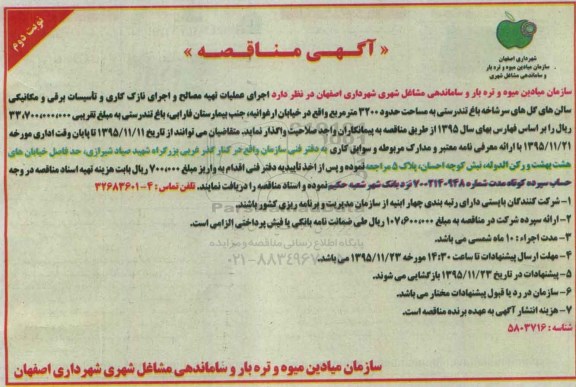 نوبت دوم
« آگهی مناقصه »
شهرداری اصفهان
سازمان میادین میوه و تره بار
و ساماندهی مشاغل شهری
سازمان میادین میوه و تره بار و ساماندهی مشاغل شهری شهرداری اصفهان در نظر دارد اجرای عملیات تهیه مصالح و اجرای نازک کاری و تأسیسات برقی و مکانیکی
سالن های گل های سرشاخه باغ تندرستی به مساحت حدود ۳۲۰۰ مترمربع واقع در خیابان ارغوانیه، جنب بیمارستان فارابی، باغ تندرستی به مبلغ تقریبی ۳۳،۷۰۰،۰۰۰،۰۰۰
ریال را بر اساس فهارس بهای سال ۱۳۹۵ از طریق مناقصه به پیمانکاران واجد صلاحیت واگذار نماید. متقاضیان می توانند از تاریخ ۱۳۹۵/۱۱/۱۱ تا پایان وقت اداری مورخه
۱۳۹۵/۱۱/۲۱ با ارائه معرفی نامه معتبر و مدارک مربوطه و سوابق کاری به دفتر فنی سازمان واقع در کنار گذر غربی بزرگراه شهید صیاد شیرازی، حد فاصل خیابان های
هشت بهشت و رکن الدوله، نبش کوچه احسان، پلاک ۵ مراجعه نموده و پس از اخذ تأییدیه دفتر فنی اقدام به واریز مبلغ ۷۰۰،۰۰۰ ریال بابت هزینه تهیه اسناد مناقصه در وجه
حساب سپرده کوتاه مدت شماره ۷۰۰۲۱۴۰۹۴۸ نزد بانک شهر شعبه حکیم نموده و اسناد مناقصه را دریافت نمایند. تلفن تماس: ۴-۳۲۶۸۳۶۰۱
۱- شرکت کنندگان بایستی دارای رتبه بندی چهار ابنیه از سازمان مدیریت و برنامه ریزی کشور باشند.
۲- ارائه سپرده شرکت در مناقصه به مبلغ ۱،۰۷۶،۰۰۰،۰۰۰ ریال طی ضمانت نامه بانکی یا فیش پرداختی الزامی است.
۳- مدت اجراء: ۱۰ ماه شمسی می باشد.
۴- مهلت ارسال پیشنهادات تا ساعت ۱۴:۳۰ مورخه ۱۳۹۵/۱۱/۲۳ می باشد.
۵- پیشنهادات در تاریخ ۱۳۹۵/۱۱/۲۳ بازگشایی می شوند.
۶- سازمان در رد یا قبول پیشنهادات مختار می باشد.
۷- هزینه انتشار آگهی به عهده برنده مناقصه است.
شناسه: ۵۸۰۳۷۱۶
پایگاه اطلاع رسانی مناقصه و مزایده
۰۲۱-۸۸۳۴۹۶۷۰
سازمان میادین میوه و تره بار و ساماندهی مشاغل شهری شهرداری اصفهان